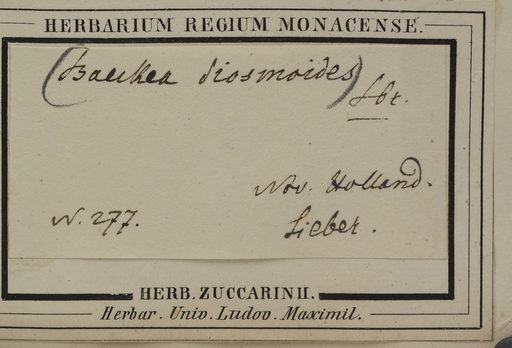 HERBARIUM REGIUM MONACENSE.
(Baeckea diosmoides) Sbr.
Nov. Holland.
N. 277. Sieber.
HERB. ZUCCARINII.
Herbar. Univ. Ludov. Maximil.